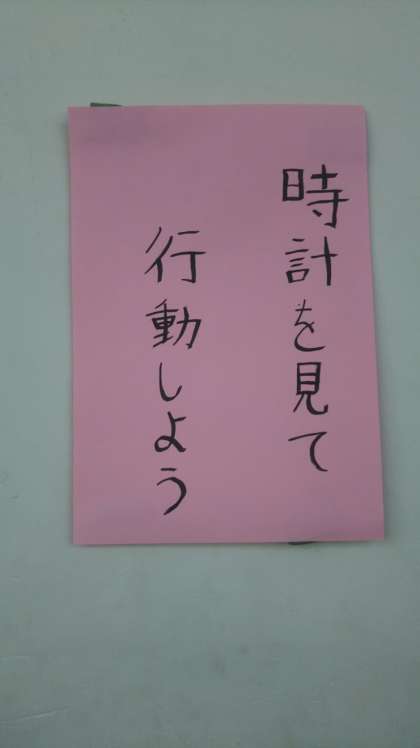 時計を見て
行動しよう